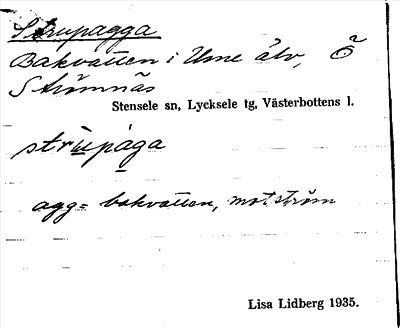 Strupagga
Bakvatten i Ume älv, Ö
Strömnäs
Stensele sn, Lycksele tg, Västerbottens l.
strupaga
agg= bakvatten, motström
Lisa Lidberg 1935.